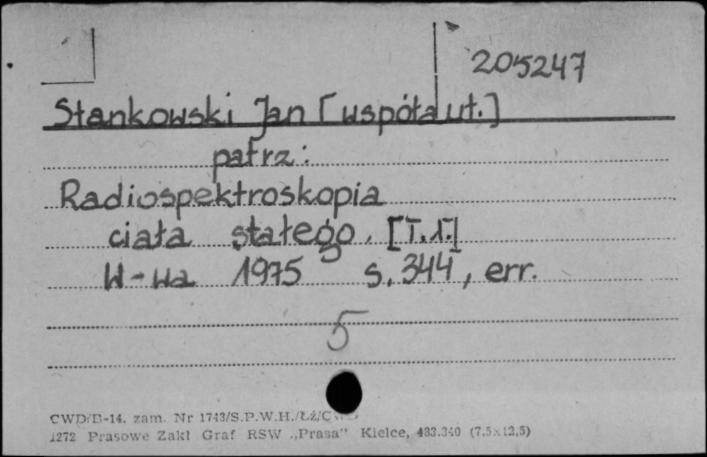 205247
Stankowski Jan [współaut.]
patrz:
Radiospektroskopia
ciała stałego. [T.1.]
W-wa 1975 s. 344, err.
5
CWD/D-14. zam. Nr 1743/S.P.W.H./Łż/
1272 Prasowe Zakł Graf RSW „Prasa" Kielce, 433.340 (7,5x12,5)